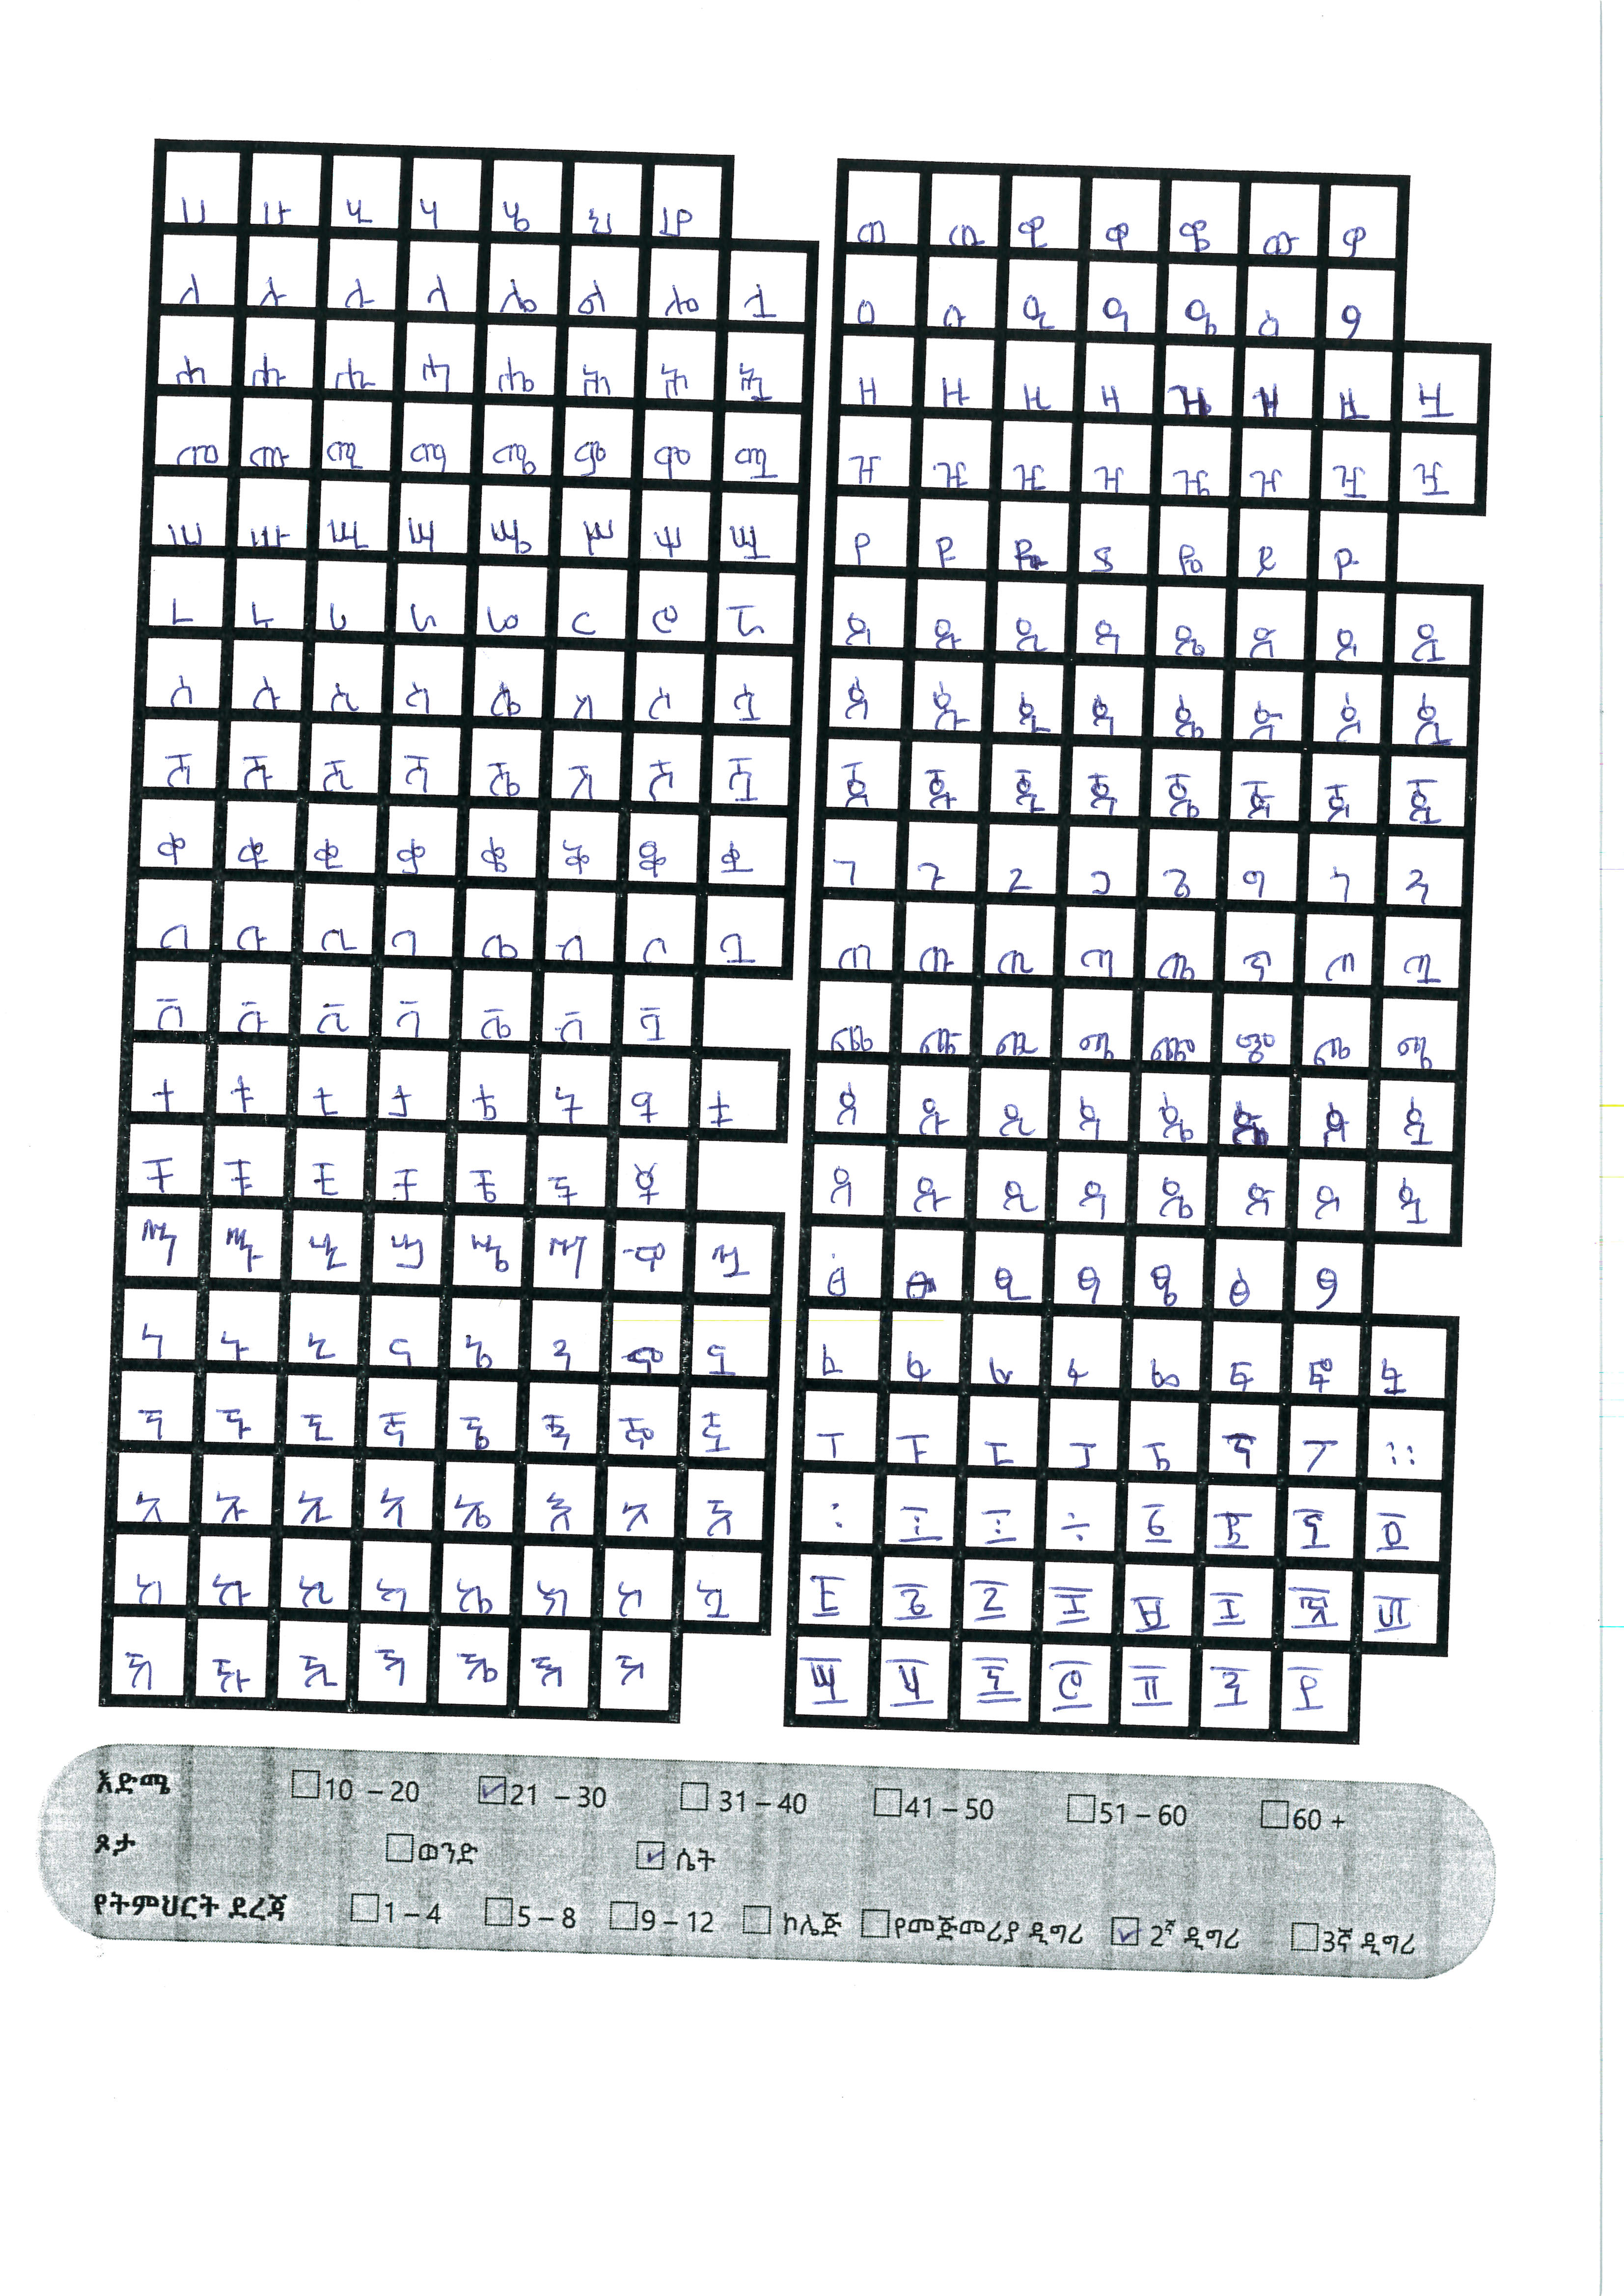 ሀ ሁ ሂ ሃ ሄ ህ ሆ
ለ ሉ ሊ ላ ሌ ል ሎ ሏ
ሐ ሑ ሒ ሓ ሔ ሕ ሖ ሗ
መ ሙ ሚ ማ ሜ ም ሞ ሟ
ሠ ሡ ሢ ሣ ሤ ሥ ሦ ሧ
ረ ሩ ሪ ራ ሬ ር ሮ ሯ
ሰ ሱ ሲ ሳ ሴ ስ ሶ ሷ
ሸ ሹ ሺ ሻ ሼ ሽ ሾ ሿ
ቀ ቁ ቂ ቃ ቄ ቅ ቆ ቋ
በ ቡ ቢ ባ ቤ ብ ቦ ቧ
ቨ ቩ ቪ ቫ ቬ ቭ ቯ
ተ ቱ ቲ ታ ቴ ት ቶ ቷ
ቸ ቹ ቺ ቻ ቼ ች ቾ
ኀ ኁ ኂ ኃ ኄ ኅ ኆ ኋ
ነ ኑ ኒ ና ኔ ን ኖ ኗ
ኘ ኙ ኚ ኛ ኜ ኝ ኞ ኟ
አ ኡ ኢ ኣ ኤ እ ኦ ኧ
ከ ኩ ኪ ካ ኬ ክ ኮ ኳ
ኸ ኹ ኺ ኻ ኼ ኽ ኾ
ወ ዉ ዊ ዋ ዌ ው ዎ
ዐ ዑ ዒ ዓ ዔ ዕ ዖ
ዘ ዙ ዚ ዛ ዜ ዝ ዞ ዟ
ዠ ዡ ዢ ዣ ዤ ዥ ዦ ዧ
የ ዩ ዪ ያ ዬ ይ ዮ
ደ ዱ ዲ ዳ ዴ ድ ዶ ዷ
ጀ ጁ ጂ ጃ ጄ ጅ ጆ ጇ
ገ ጉ ጊ ጋ ጌ ግ ጎ ጓ
ጠ ጡ ጢ ጣ ጤ ጥ ጦ ጧ
ጨ ጩ ጪ ጫ ጬ ጭ ጮ ጯ
ጰ ጱ ጲ ጳ ጴ ጵ ጶ ጷ
ጸ ጹ ጺ ጻ ጼ ጽ ጾ ጿ
ፀ ፁ ፂ ፃ ፄ ፅ ፆ
ፈ ፉ ፊ ፋ ፌ ፍ ፎ ፏ
ፐ ፑ ፒ ፓ ፔ ፕ ፖ ።
፡ ፤ ÷ ፩ ፪ ፫ ፬
፭ ፮ ፯ ፰ ፱ ፲ ፳ ፴
፵ ፶ ፷ ፸ ፹ ፺ ፻
እድሜ 10 – 20 21 – 30 31 – 40 41 – 50 51 – 60 60 +
ጾታ ወንድ ሴት
የትምህርት ደረጃ 1 – 4 5 – 8 9 – 12 ኮሌጅ የመጀመሪያ ዲግሪ 2ኛ ዲግሪ 3ኛ ዲግሪ